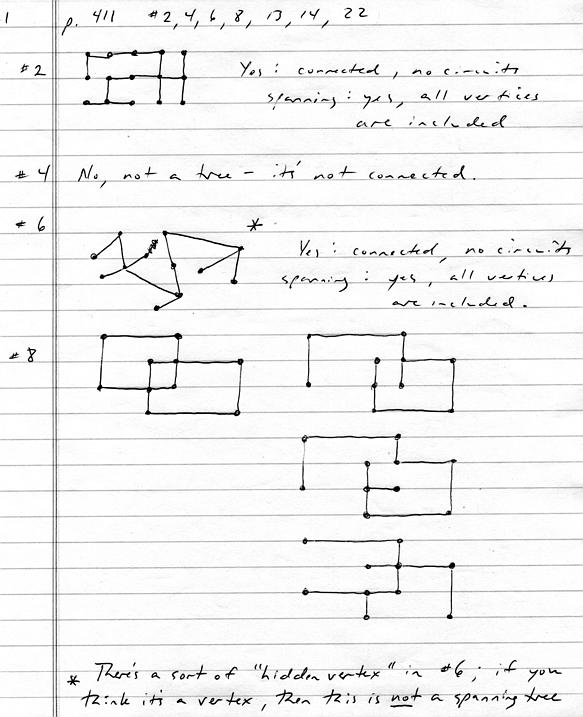 1
p. 411 #2, 4, 6, 8, 13, 14, 22
#2 Yes: connected, no circuits
spanning: yes, all vertices
are included
#4 No, not a tree - it's not connected.
#6 * Yes: connected, no circuits
spanning: yes, all vertices
are included.
#8
* There's a sort of "hidden vertex" in #6; if you
think it's a vertex, then this is not a spanning tree